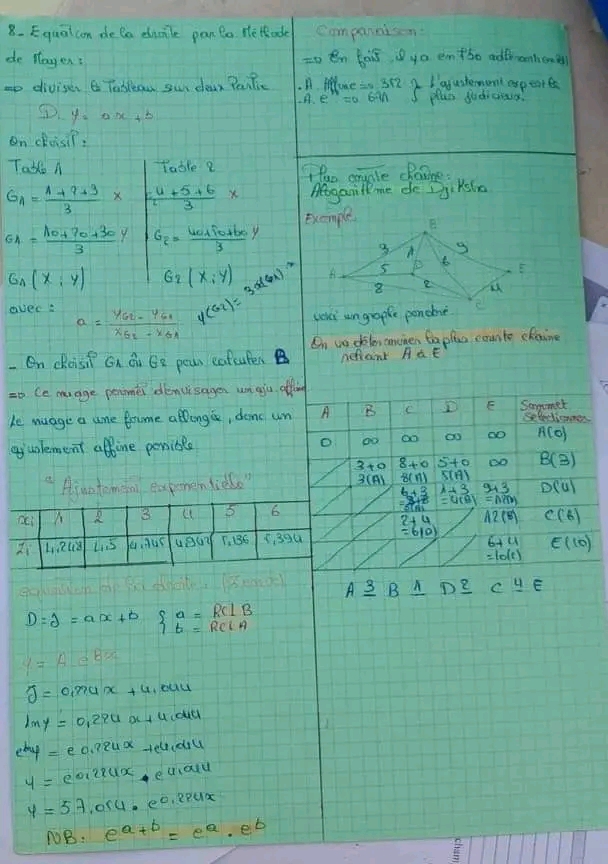 8- Equation de la droite par la Méthode
de Mayer:
=> diviser le Tableau sur deux Partie
D: y = ax+b
On choisit:
Table 1
Table 2
G1 = 1+2+3 / 3 x
4+5+6 / 3 x
G1 = 10+20+30 / 3 y
G2 = 40+50+60 / 3 y
G1 (X; Y)
G2 (X; Y)
avec:
a = yG2 - yG1 / xG2 - xG1
- On choisit G1 ou G2 pour calculer B
=> Ce nuage permet d'envisager un aju. affine
Le nuage a une forme allongée, donc un
ajustement affine possible.
"Ajustement exponentielle"
xi 1 2 3 4 5 6
Zi 4,248 4,5 4,745 4,942 5,136 5,394
équation de la droite
D = J = ax+b { a = RCL B
b = RCL A
y = A eBx
J = 0,224x + 4,044
lny = 0,224x + 4,044
elny = e0,224x + e4,044
y = e0,224x . e4,044
y = 57,054 . e0,224x
NB. e^a+b = e^a . e^b
Comparaison:
=> En fait, il y a en 750
. A. Affine => 352 } L'ajustement exp est le
. A. e => 691 } plus judicieux.
Plus courte chaîne:
Alogarithme de Djiksta.
Exemple
B
3 1 9
A 5 D 6 E
8 2 4
C
voici un graphe pondéré.
On va déterminer la plus courte chaîne
reliant A à E
A B C D E Sommet
Sélectionner
0 ∞ ∞ ∞ ∞ A(0)
3+0 8+0 5+0 ∞ B(3)
3(A) 8(A) 5(A)
6+3 1+3 9+3 D(4)
=4(B) =12(B)
2+4 12(B) C(6)
=6(D)
6+4 E(10)
=10(C)
A 3 B 1 D 2 C 4 E